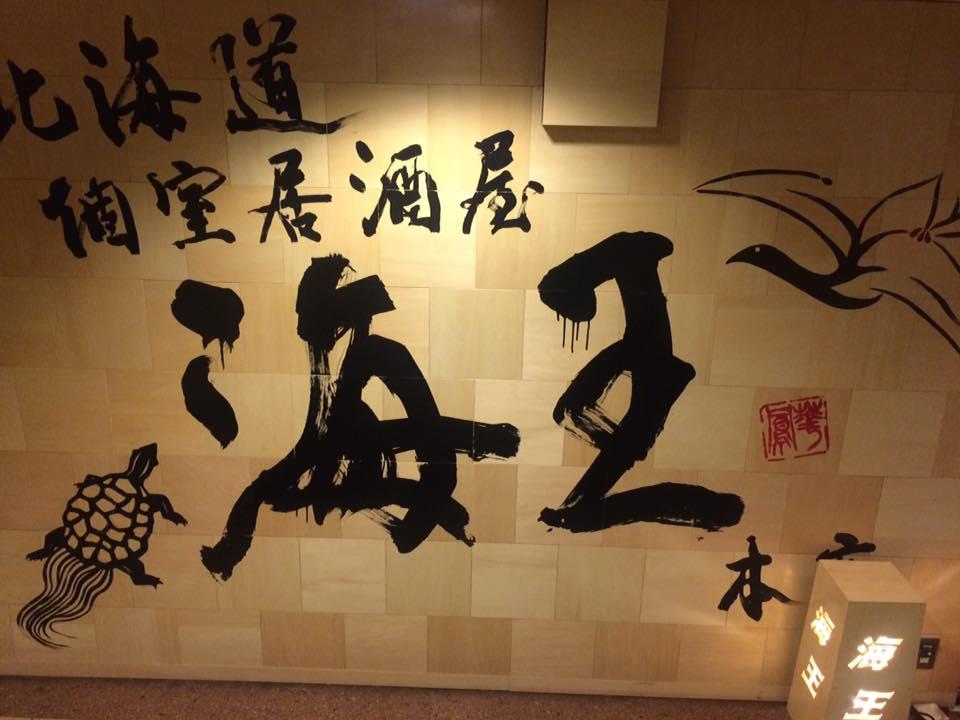 北海道
個室居酒屋
海王
本
海王
海王